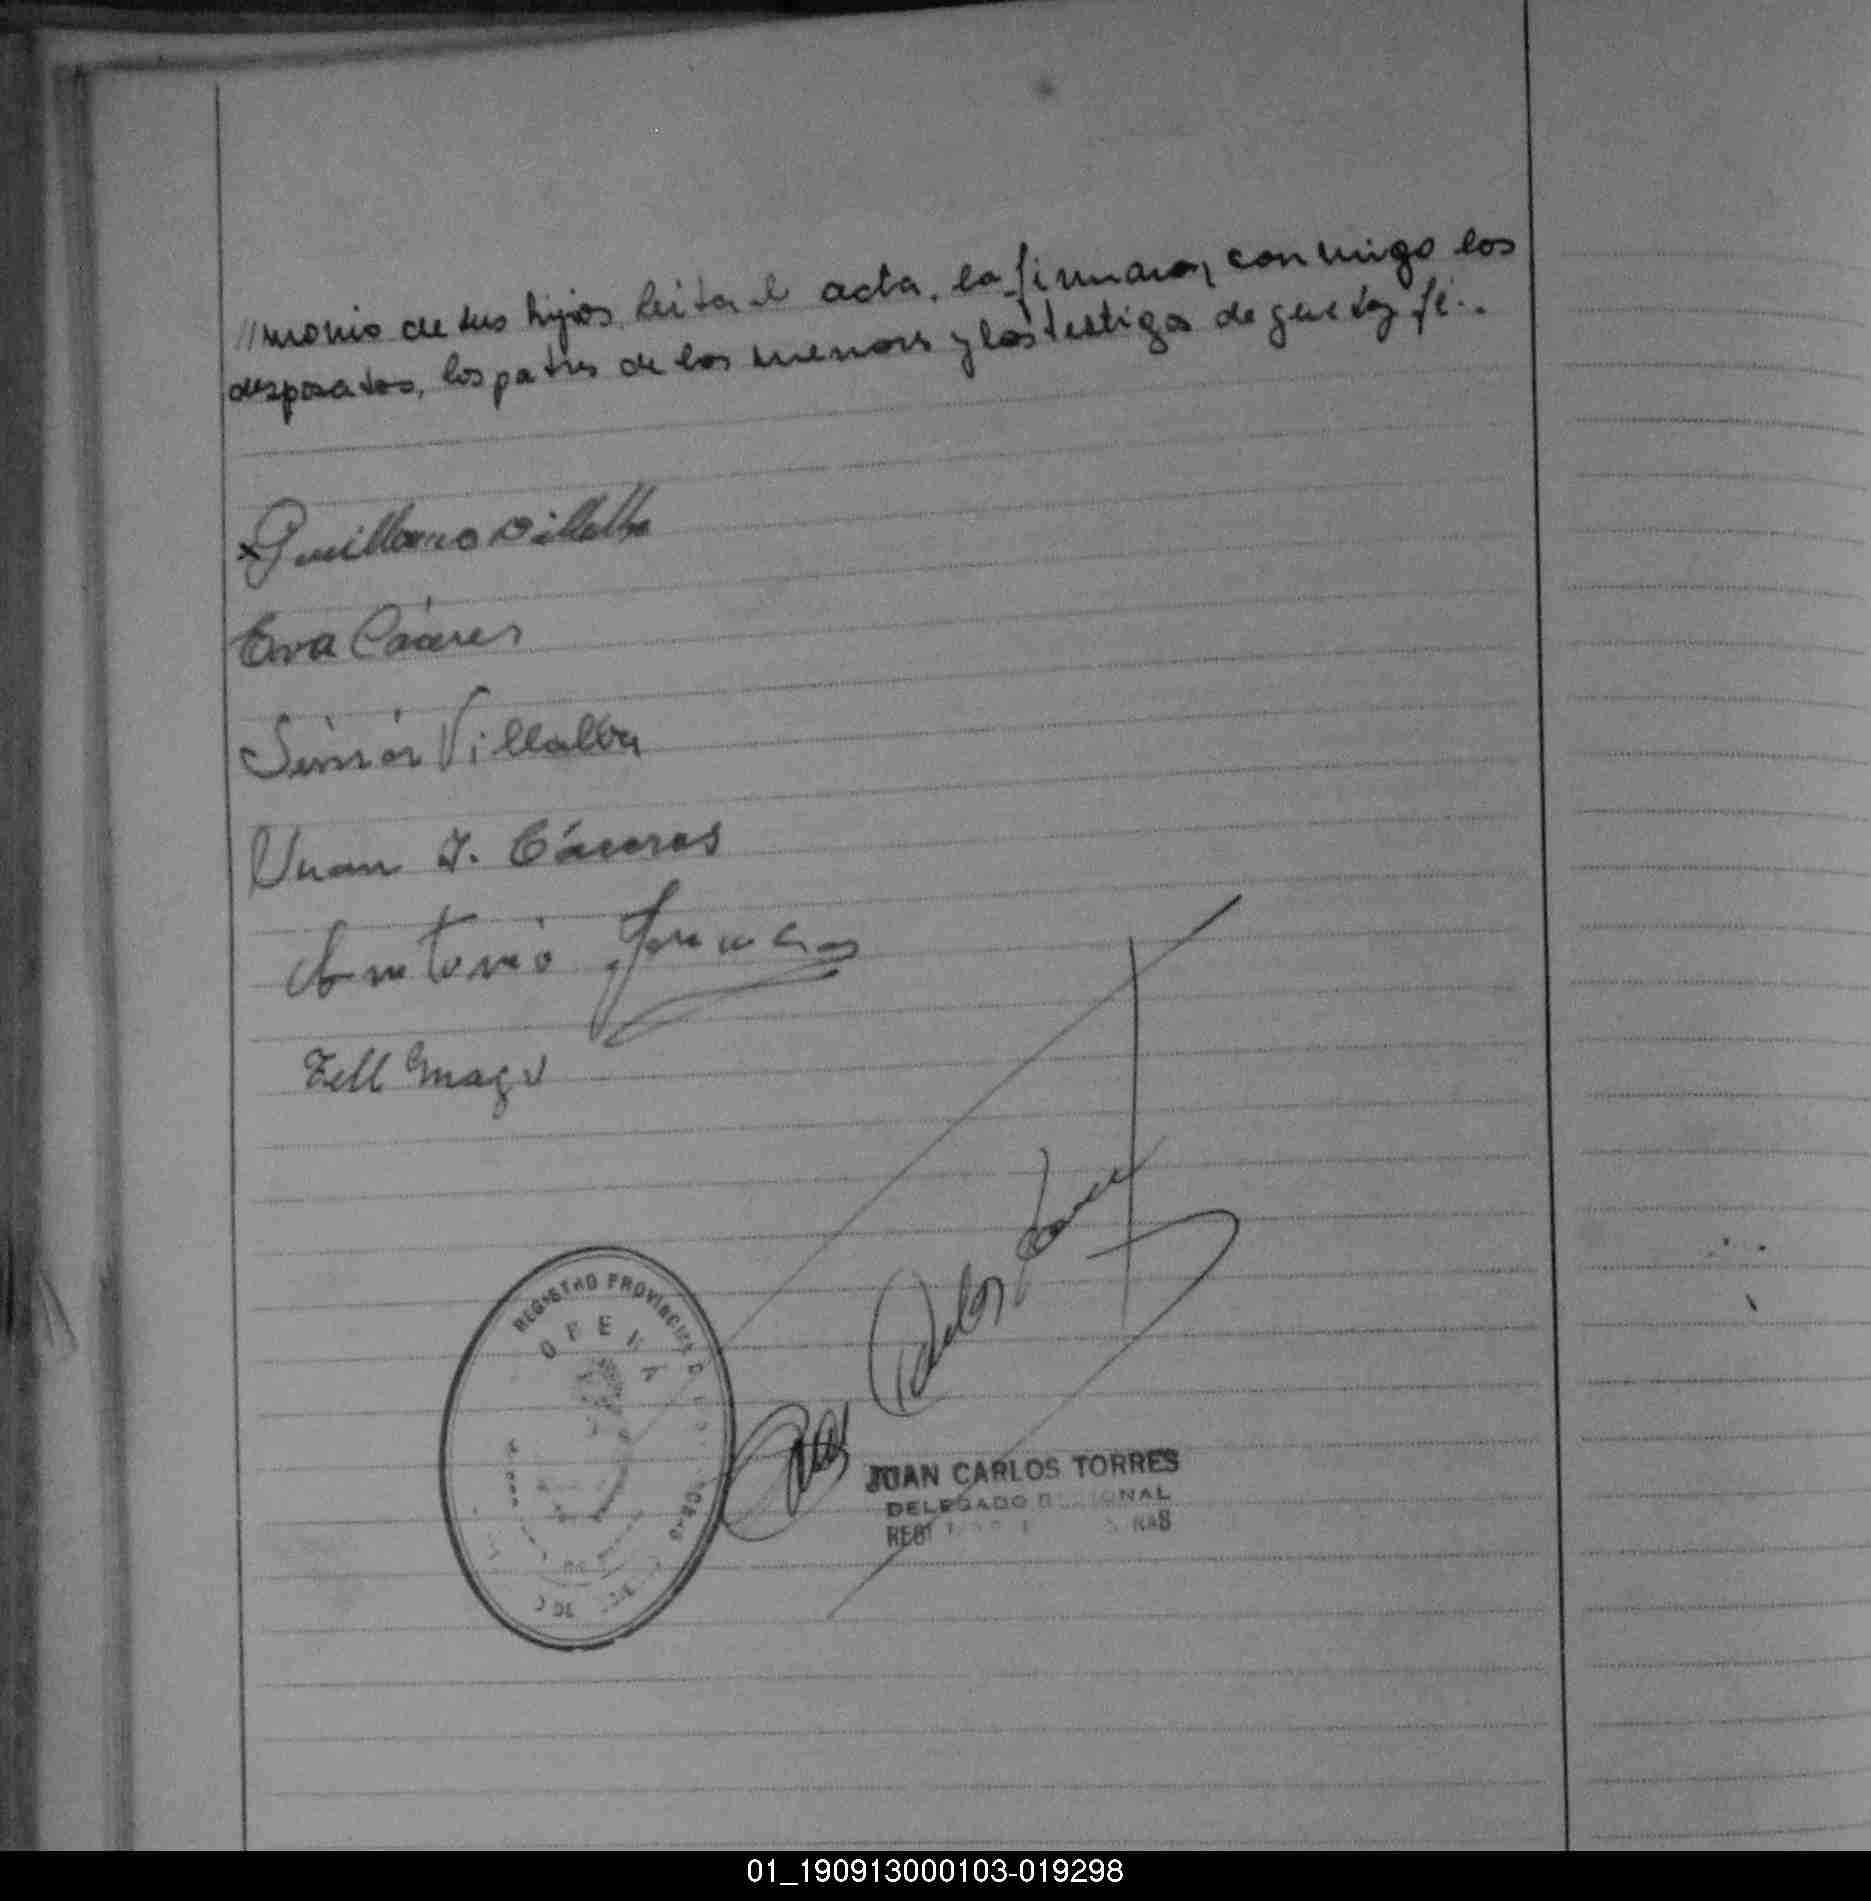 //monio de sus hijos. Leida el acta, la firmaron conmigo los
desposados, los padres de los menores y los testigos de que doy fé.-
Guillermo Villalba
Eva Cáceres
Simón Villalba
Juan J. Cáceres
Antonio
Tell
Juan Carlos Torres
REGISTRO PROVINCIAL D
JUAN CARLOS TORRES
DELEGADO REGIONAL
01_190913000103-019298